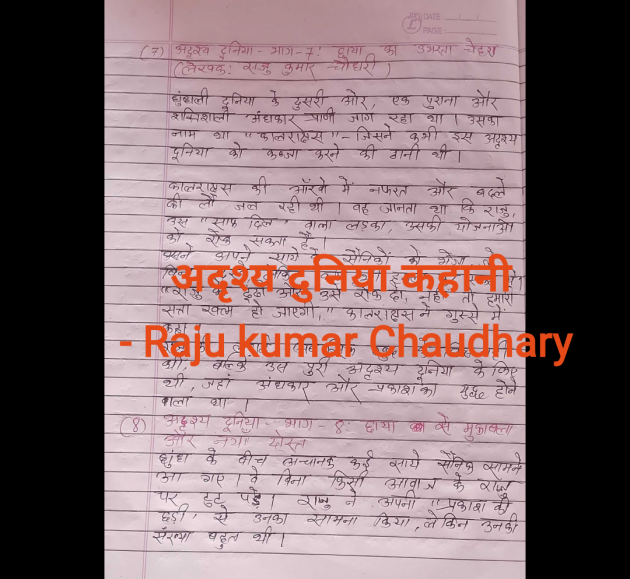 DATE
PAGE
(7) अदृश्य दुनिया - भाग-7: छाया का उभरता चेहरा
(लेखक: राजु कुमार चौधरी)
धुंधली दुनिया के दुसरी ओर, एक पुराना और
शक्तिशाली अंधकार प्राणी जाग रहा था। उसका
नाम था "कालराक्षस" - जिसने कभी इस अदृश्य
दुनिया को कब्जा करने की ठानी थी।
कालराक्षस की आँखों में नफरत और बदले
की लौ जल रही थी। वह जानता था कि राजु,
वह "साफ दिल" वाला लड़का, उसकी योजनाओं
को रोक सकता है।
उसने अपने साये के सैनिकों को भेजा
अदृश्य दुनिया कहानी
"राजु को ढूंढो और उसे रोक दो, नहीं तो हमारी
सत्ता खत्म हो जाएगी," कालराक्षस ने गुस्से में
कहा
- Raju kumar Chaudhary
की, बल्कि उस पुरी अदृश्य दुनिया के लिए
थी, जहाँ अंधकार और प्रकाश का युद्ध होने
वाला था।
(8) अदृश्य दुनिया - भाग - 8: छाया से मुकाबला
और नया दोस्त
धुंध के बीच अचानक कई साये सैनिक सामने
आ गए। वे बिना किसी आवाज के राजु
पर टुट पड़े। राजु ने अपनी "प्रकाश की
छड़ी" से उनका सामना किया, लेकिन उनकी
संख्या बहुत थी।